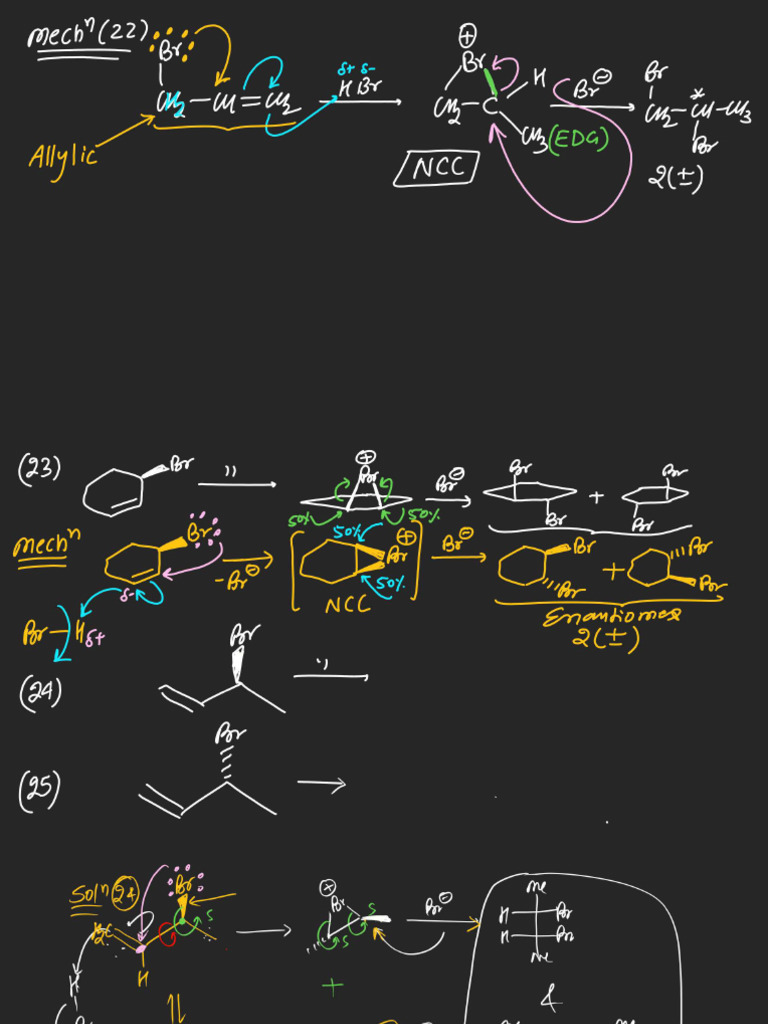 mechⁿ (22)
Br
CH2 – CH = CH2
δ+ δ-
H Br
Allylic
⊕
Br
CH2 – C
H
CH3 (EDG)
NCC
Br⊖
Br
CH2 – CH – CH3
*
Br
2(±)
(23)
Br
''
⊕
Br
50% 50%
Br⊖
Br
Br
+
Br
Br
mechⁿ
Br
δ-
Br – H δ+
-Br⊖
50%
Br ⊕
50%
NCC
Br⊖
Br
Br
+
Br
Br
Enantiomer
2(±)
(24)
Br
''
(25)
Br
Solⁿ 24
Br
S
H2C
H
H
⊕
Br
S
S
+
Br⊖
Me
H Br
H Br
Me
&